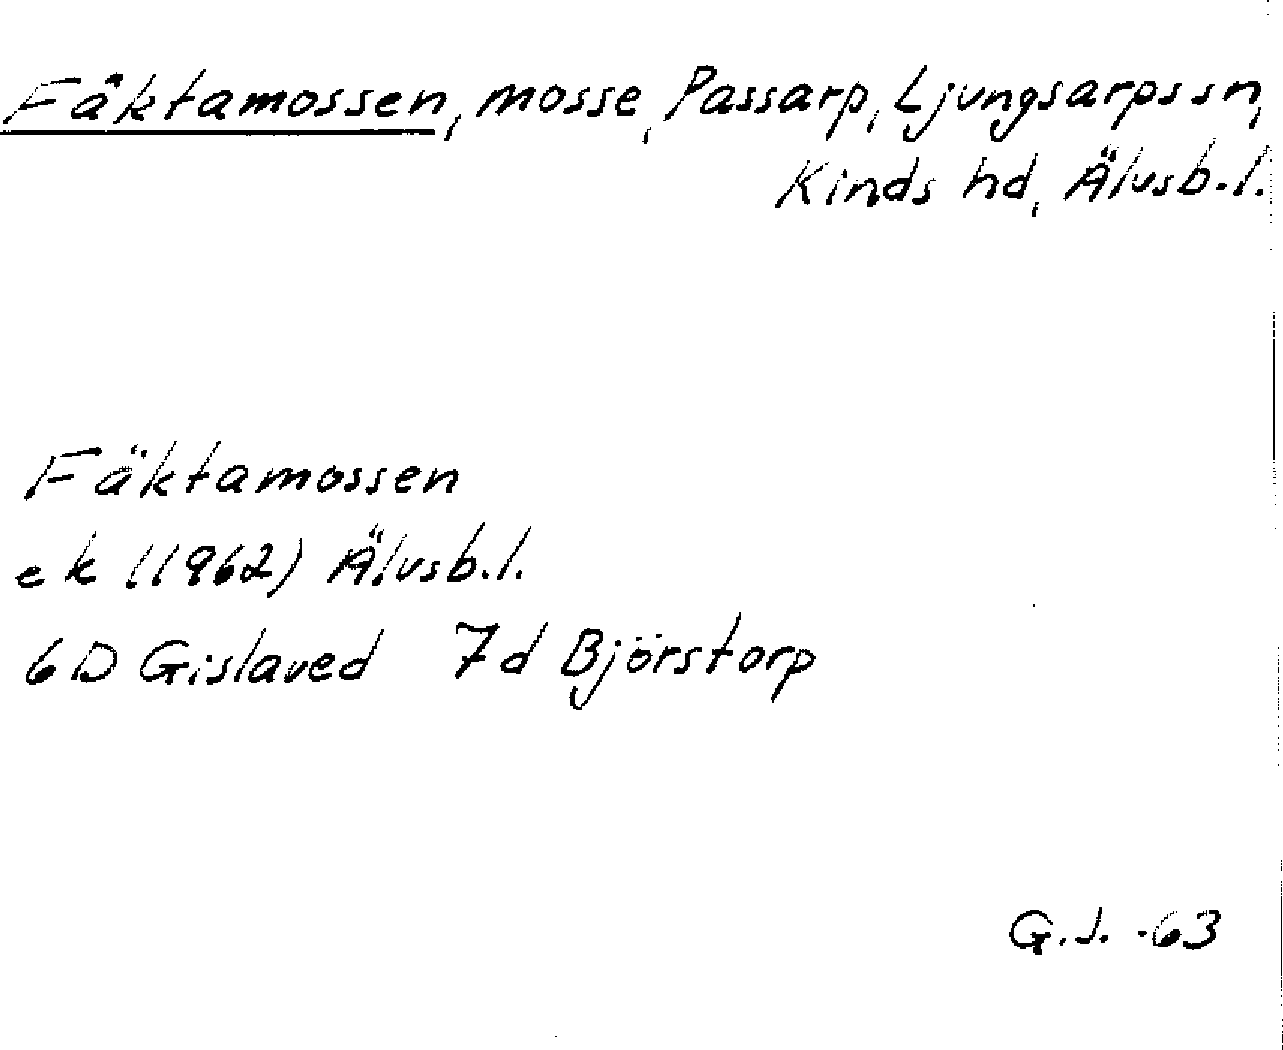 Fäktamossen, mosse, Passarp, Ljungsarps sn,
Kinds hd, Älvsb.l.
Fäktamossen
ek (1962) Älvsb.l.
6D Gislaved 7d Björstorp
G.J. -63